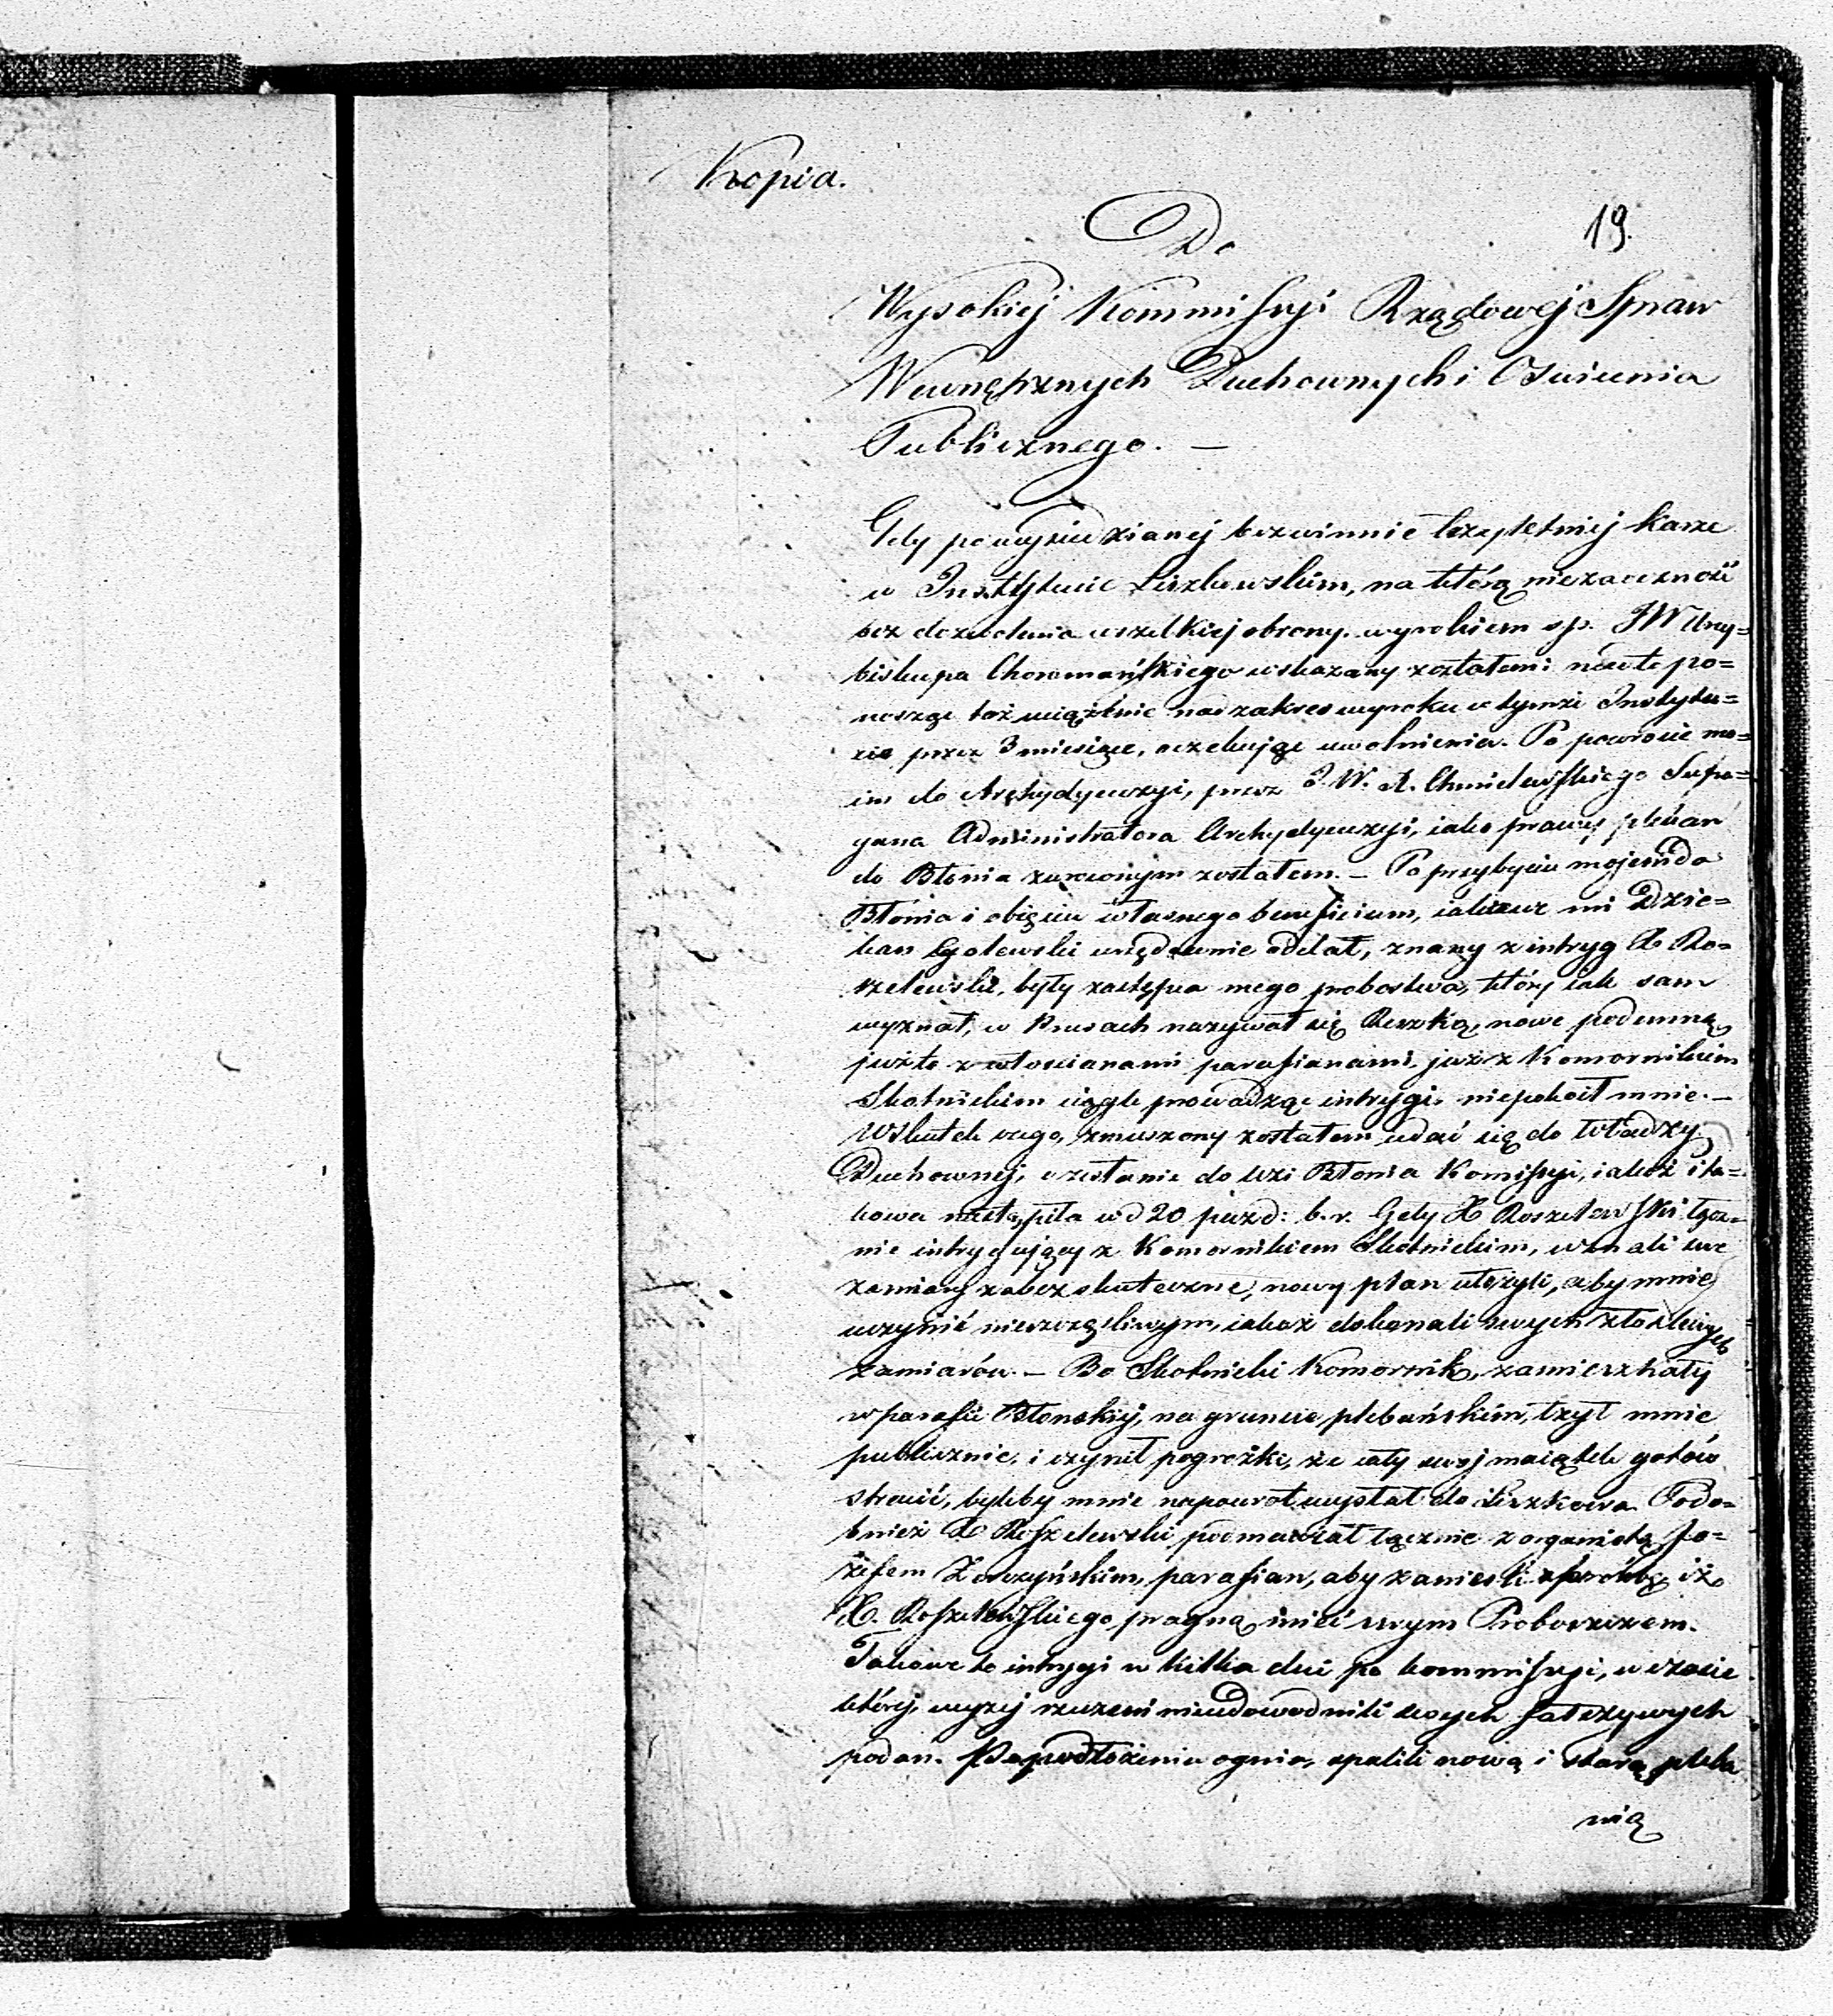 Kopia.
19.
Do
Wysokiej Kommissyi Rządowej Spraw
Wewnętrznych Duchownych i Oświenia
Publicznego. —
Gdy po wysiedzianej bezwinnie trzyletniej karze
w Instytucie Liszkowskim, na którą niezaoczność
bez dozwolenia wszelkiej obrony. wyrokiem sp. JW Arcy=
biskupa Choromańskiego wskazany zostałem: po=
nosząc też uciążliwie nad zakres wyroku w tymże Instytu=
cie przez 3 miesiące, oczekując uwolnienia. Po powrocie mo=
im do Archydyecezyi, przez J. W. A. Chmielewskiego Sufra=
gana Administratora Archydyecezyi, iako prawy pleban
do Błonia zwróconym zostałem. — Po przybyciu mojem do
Błonia i obięciu własnego beneficium, iakowe mi Dzie=
kan Golewski urzędownie oddał, znany z intryg X Ro=
szelewski, były zastępca mego probostwa, który iak sam
wyznał, w Prusach nazywał się Reszką, nowe podemną
już to z włościanami parafianami, już z Komornikiem
Skotnickim ciągle prowadząc intrygi niepokoił mnie. —
Wskutek czego, zmuszony zostałem udać się do Władzy
Duchownej, o zesłanie do wsi Błonia Komissyi, iakoż i ta=
kowa nastąpiła w d 20 paźd: b. r. Gdy X Roszelewski łącz=
nie intrygujący z Komornikiem Skotnickim, uznali swe
zamiary za bezskuteczne, nowy plan ułożyli, aby mnie
uczynić nieszczęśliwym, iakoż dokonali swych złośliwych
zamiarów. — Bo Skotnicki Komornik, zamieszkały
w parafii Błonskiej, na gruncie plebańskim, lżył mnie
publicznie, i czynił pogrożki, że cały swój maiątek gotów
stracić, byleby mnie napowrot wysłał do Liszkowa. Podo=
bnież X Roszelewski podmawiał łącznie z organistą Jó=
zefem Zawszyńskim, parafian, aby zanieśli prośbę iż
X. Roszelewskiego pragną mieć swym Proboszczem.
Takowe to intrygi w kilka dni po kommissyi, w czasie
której, wyżej rzeczeni nieudowodnili swych fałszywych
podań. Po podłożeniu ognia, spalili nową i starą pleba
nią